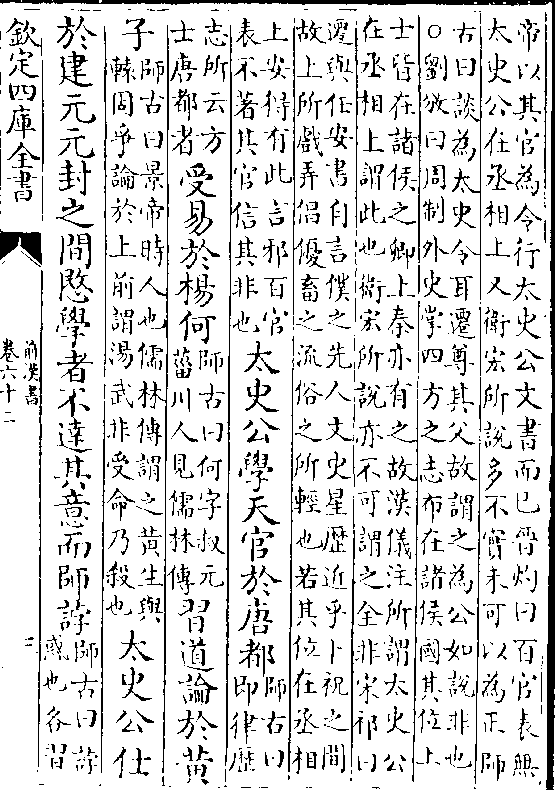 帝以其官為令行太史公文書而已晉灼曰百官表無
太史公在丞相上又衛宏所說多不實未可以為正師
古曰談為太史令耳遷尊其父故謂之為公如說非也
○劉攽曰周制外史掌四方之志布在諸侯國其位上
士皆在諸侯之卿上秦亦有之故漢儀注所謂太史公
在丞相上謂此也衛宏所說亦不可謂之全非宋祁曰
遷與任安書自言僕之先人文史星歷近乎卜祝之間
故上所戲弄倡優畜之流俗之所輕也若其位在丞相
上安得有此言邪百官
表不著其官信其非也
太史公學天官於唐都
師古曰
即律歷
志所云方
士唐都者
受易於楊何
師古曰何字叔元
菑川人見儒林傳
習道論於黃
子
師古曰景帝時人也儒林傳謂之黃生與
轅固爭論於上前謂湯武非受命乃殺也
太史公仕
於建元元封之間愍學者不達其意而師誖
師古曰誖
惑也各習
欽定四庫全書
前漢書
卷六十二
三